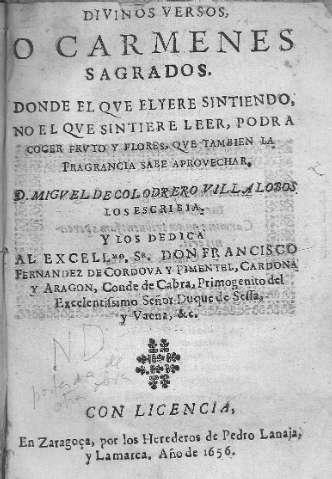 DIVINOS VERSOS,
O CARMENES
SAGRADOS.
DONDE EL QVE ELYERE SINTIENDO,
NO EL QVE SINTIERE LEER, PODRA
COGER FRVTO Y FLORES, QVE TAMBIEN LA
FRAGRANCIA SABE APROVECHAR.
D. MIGVEL DE COLODRERO VILLALOBOS
LOS ESCRIBIA,
Y LOS DEDICA
AL EXCELL.mo, Sr. DON FRANCISCO
FERNANDEZ DE CORDOVA Y PIMENTEL, CARDONA
Y ARAGON, Conde de Cabra, Primogenito del
Excelentissimo Señor Duque de Sessa,
y Vaena, &c.
N.D.
portada de
otra obra
CON LICENCIA,
En Zaragoça, por los Herederos de Pedro Lanaja,
y Lamarca, Año de 1656.